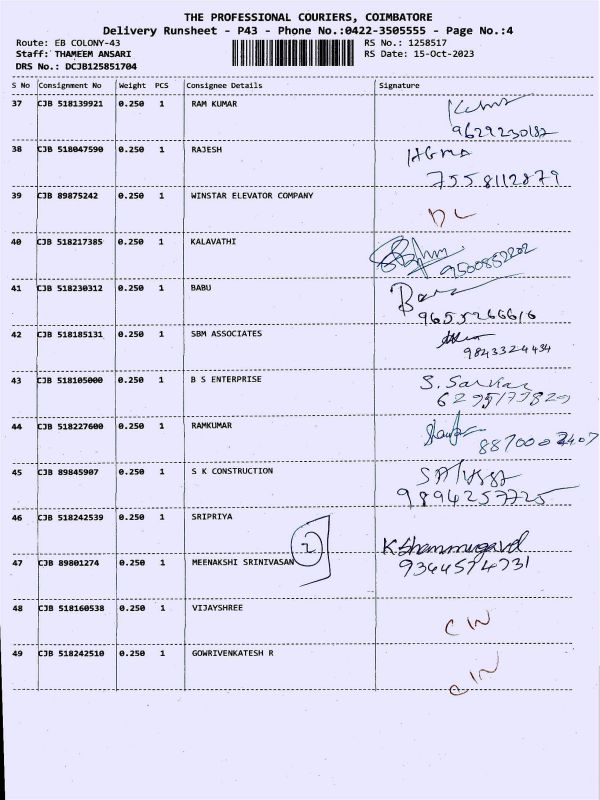 THE PROFESSIONAL COURIERS, COIMBATORE
Delivery Runsheet - P43 - Phone No.:0422-3505555 - Page No.:4
Route: EB COLONY-43 RS No.: 1258517
Staff: THAMEEM ANSARI RS Date: 15-Oct-2023
DRS No.: DCJB125851704
S No Consignment No Weight PCS Consignee Details Signature
37 CJB 518139921 0.250 1 RAM KUMAR
9629230182
38 CJB 518047590 0.250 1 RAJESH
7558112879
39 CJB 89875242 0.250 1 WINSTAR ELEVATOR COMPANY
DL
40 CJB 518217385 0.250 1 KALAVATHI
9500852202
41 CJB 518230312 0.250 1 BABU
9655266616
42 CJB 518185131 0.250 1 SBM ASSOCIATES
9843324434
43 CJB 518105000 0.250 1 B S ENTERPRISE S. Sarkar
44 CJB 518227600 0.250 1 RAMKUMAR
45 CJB 89845907 0.250 1 S K CONSTRUCTION
9894257725
46 CJB 518242539 0.250 1 SRIPRIYA
2 K Shanmugavel
47 CJB 89801274 0.250 1 MEENAKSHI SRINIVASAN 9364574731
48 CJB 518160538 0.250 1 VIJAYSHREE
CIN
49 CJB 518242510 0.250 1 GOWRIVENKATESH R
CIN